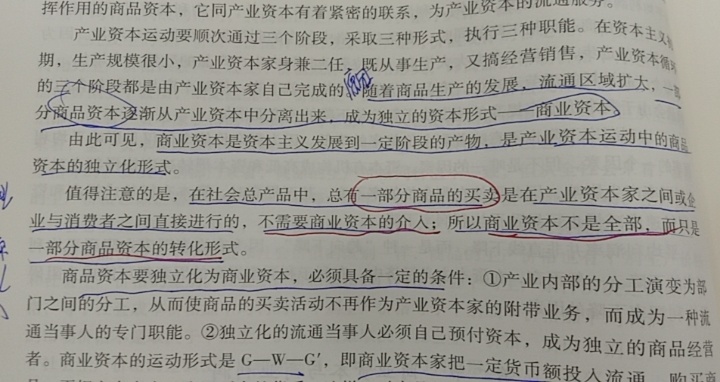 挥作用的商品资本，它同产业资本有着紧密的联系，为产业资本的流通服务。
产业资本运动要顺次通过三个阶段，采取三种形式，执行三种职能。在资本主义初
期，生产规模很小，产业资本家身兼二任，既从事生产，又搞经营销售，产业资本循环
的三个阶段都是由产业资本家自己完成的。随着商品生产的发展，流通区域扩大，一部
分商品资本逐渐从产业资本中分离出来，成为独立的资本形式——商业资本。
由此可见，商业资本是资本主义发展到一定阶段的产物，是产业资本运动中的商品
资本的独立化形式。
值得注意的是，在社会总产品中，总有一部分商品的买卖是在产业资本家之间或企
业与消费者之间直接进行的，不需要商业资本的介入；所以商业资本不是全部，而只是
一部分商品资本的转化形式。
商品资本要独立化为商业资本，必须具备一定的条件：①产业内部的分工演变为部
门之间的分工，从而使商品的买卖活动不再作为产业资本家的附带业务，而成为一种流
通当事人的专门职能。②独立化的流通当事人必须自己预付资本，成为独立的商品经营
者。商业资本的运动形式是 G—W—G′，即商业资本家把一定货币额投入流通，购买商